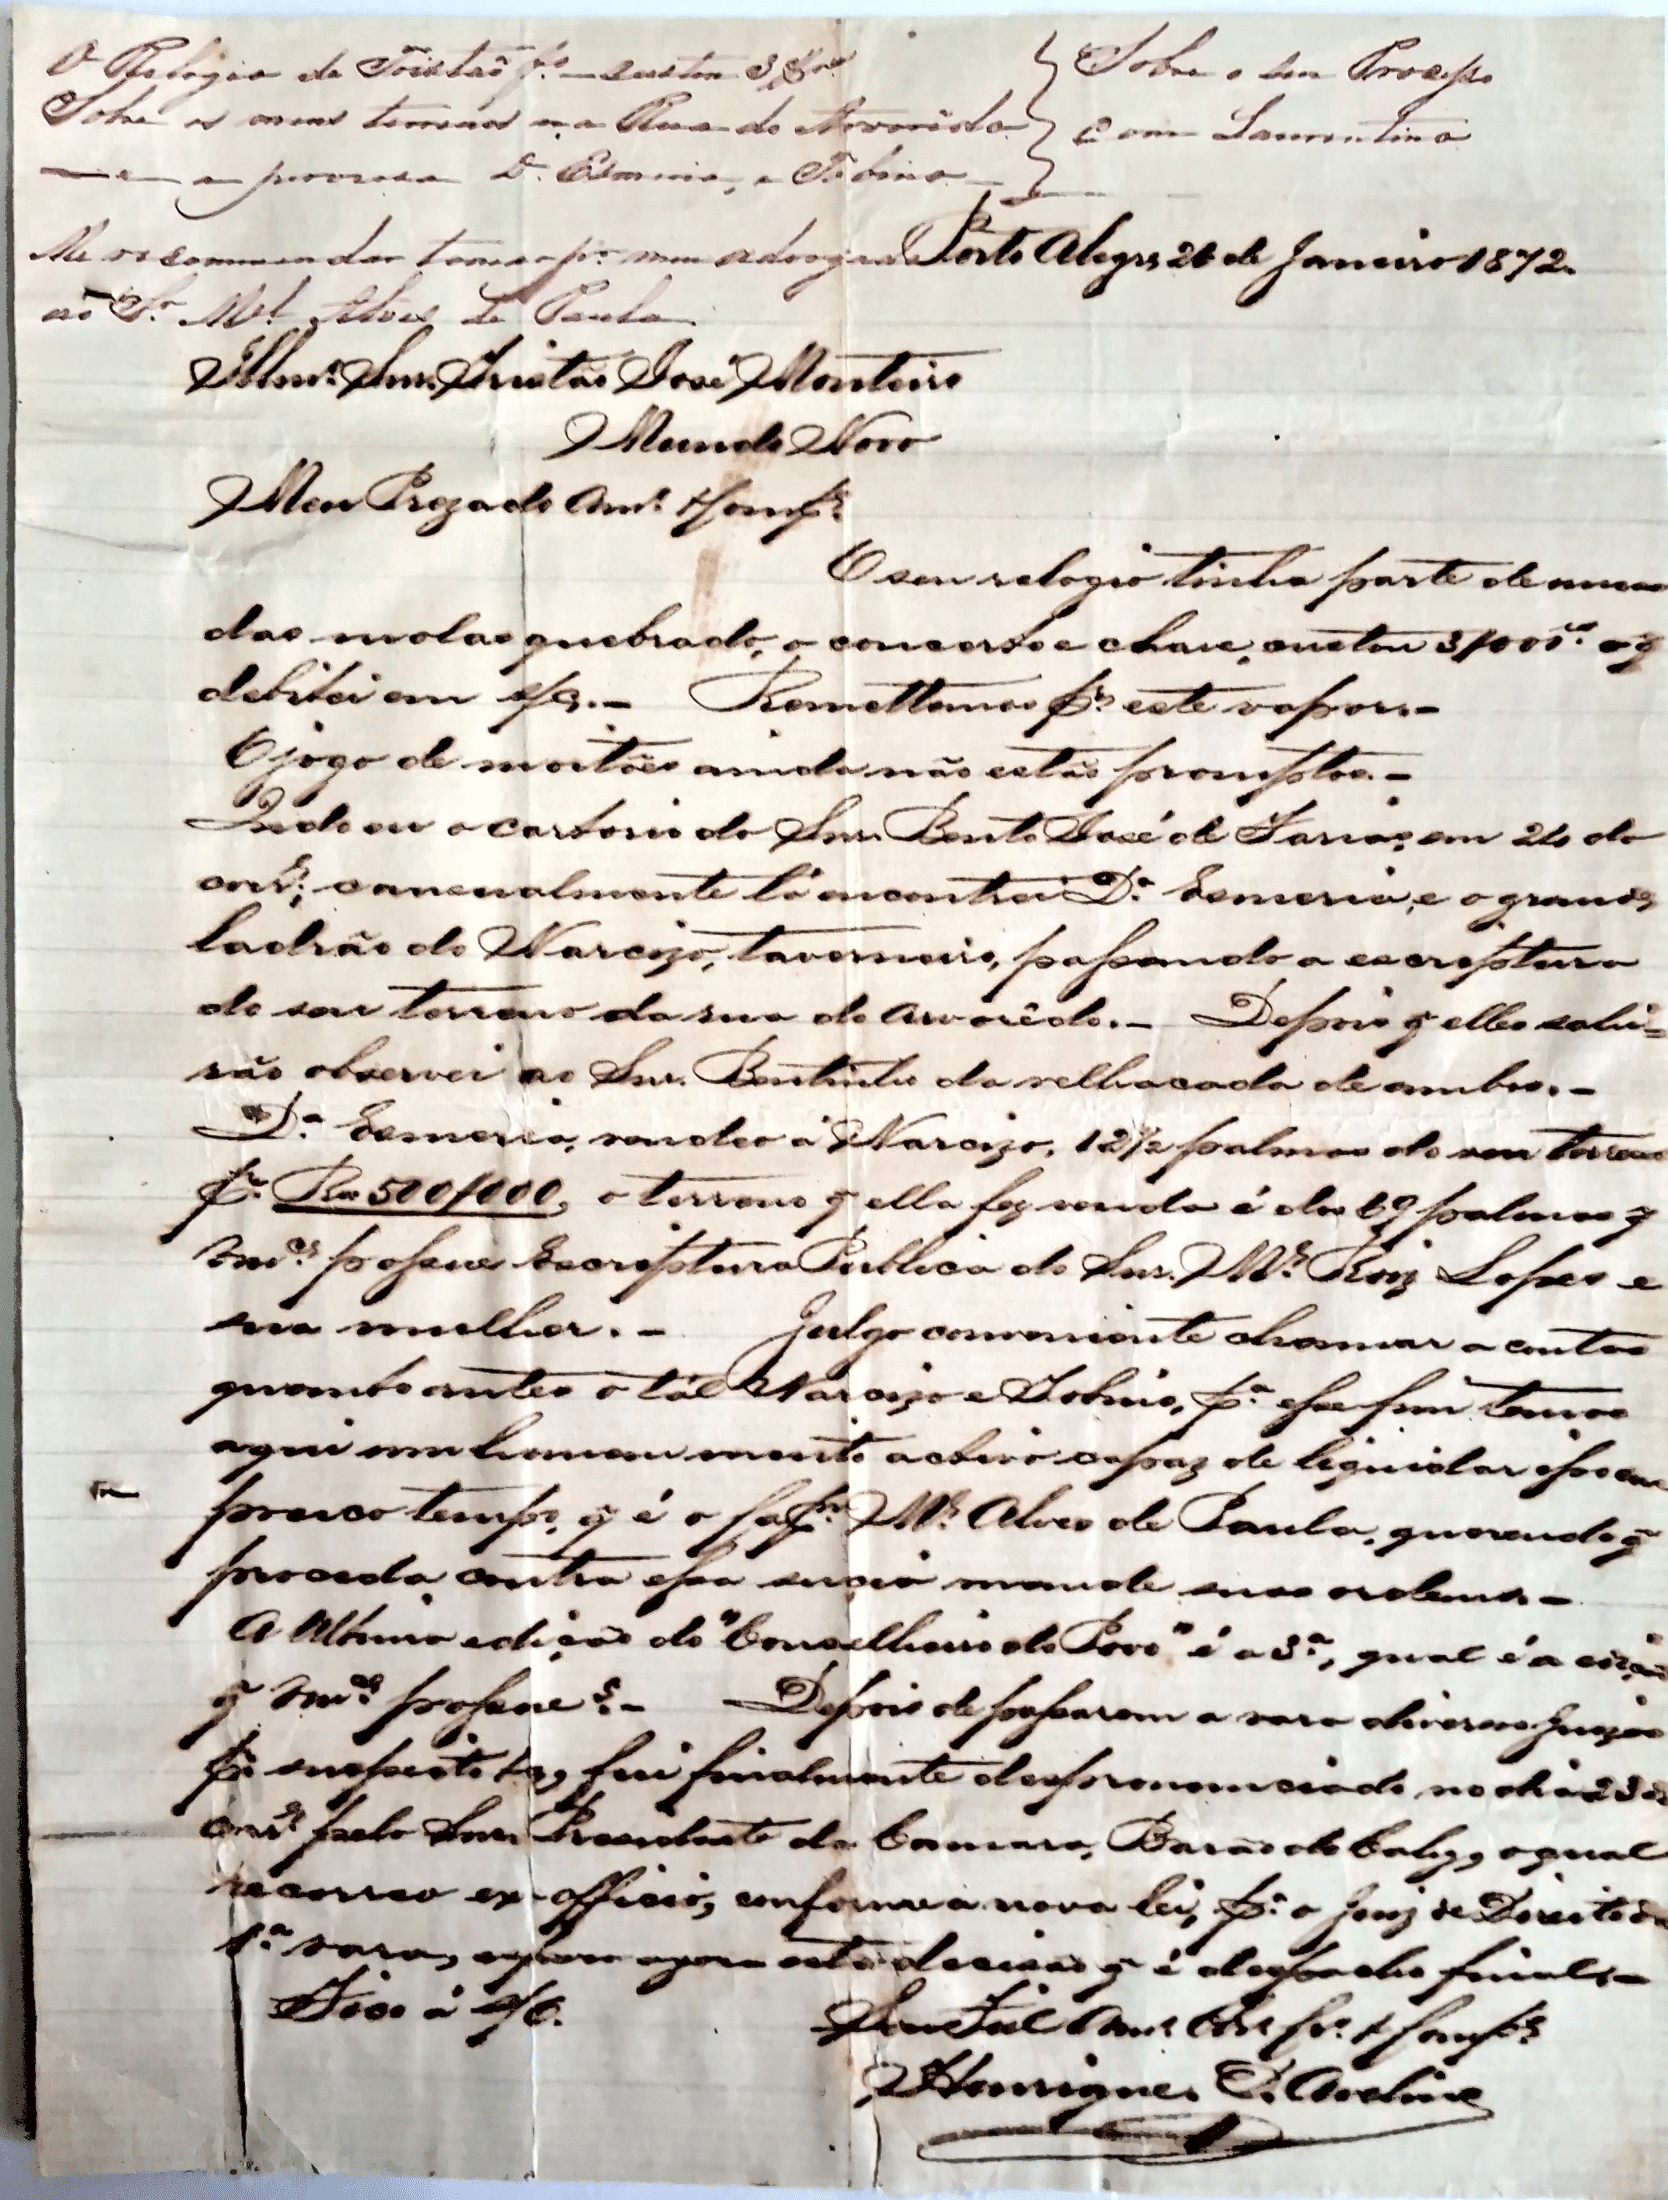 O Relogio de Tristão f.º custou 3$
Sobre os meus terrenos na Rua do Arvoredo
e a D. Esmeria, e Tobino
Sobre o seu Processo
com Laurentino
Me recommendar tomar p.r meu advogado
ao S.r M.el Alves de Paula
Porto Alegre 26 de Janeiro 1872.
Illm.º Snr. Tristão José Monteiro
Mundo Novo
Meu Prezado Am.º & Comp.e
O seu relogio tinha parte de uma
das molas quebrado, o concerto e chave, custou 3/000 o q̃
debitei em s/c. — Remettemos p.r este vapor. —
O jogo de moitões ainda não estão promptos. —
Indo eu o cartorio do Snr. Bento José de Farias, em 24 do
corr.e, casualmente lá encontrei D.a Esmeria, e o grande
ladrão do Narcizo, taverneiro, passando a escriptura
do seu terreno da rua do Arvorêdo. — Depois q̃ elles sahi=
rão observei ao Snr. Bentinho da velhacada de ambos. —
D.a Esmeria, vendeo á Narcizo, 12½ palmos do seu terreno
p.r Rs 500/000, o terreno q̃ ella fez venda é dos 69 palmos q̃
Vm.ce possue Escriptura Publica do Snr. M.el Roiz Lopes e
sua mulher. — Julgo conveniente chamar a contas
quanto antes o tál Narcizo e Tobino, p.a esse fim temos
aqui um homem muito activo capaz de liquidar isso em
pouco tempo, q̃ é o M.el Alves de Paula, querendo q̃
proceda contra essa sucia mande suas ordens. —
A ultima edição do "Conselheiro do Povo" é a 3.a, qual é a edição
q̃ Vm.ce possue?. — Depois de passarem a vara diversos Juizes
p.r suspeitos &a, fui finalmente despronunciado no dia 23 do
corr.e pelo Snr. Presidente da Camara, Barão do Cahy, o qual
recorreo ex-officio, conforme a nova lei, p.a o Juiz de Direito da
1.a vara, espero agora esta decisão q̃ é despacho final. —
Fico á s/c.
Sou Fiel Am.º Obr.º & Comp.e
Henrique C. Aveline